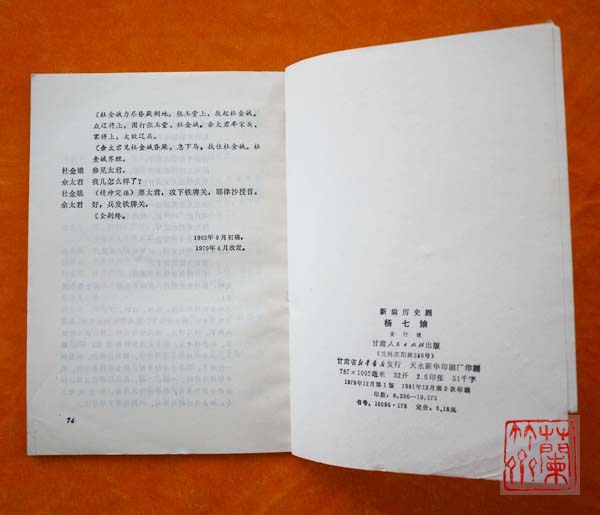 〔杜金娥力尽昏厥倒地，张玉堂上，扶起杜金娥。
众辽将上，围打张玉堂、杜金娥。佘太君率宋兵、
宋将上，大败辽兵。
〔佘太君见杜金娥昏厥，急下马，扶住杜金娥。杜
金娥苏醒。
杜金娥 参见太君。
佘太君 我儿怎么样了？
杜金娥 （精神突振）禀太君，攻下铁牌关，耶律沙授首。
佘太君 好，兵发铁牌关。
〔全剧终。
1963年9月初稿。
1979年4月改定。
74
新编历史剧
杨七娘
金行健
甘肃人民出版社出版
（兰州庆阳路230号）
甘肃省新华书店发行 天水新华印刷厂印刷
787×1092毫米 32开 2.5印张 51千字
1979年12月第1版 1981年12月第2次印刷
印数：8,386—19,575
书号：10096·178 定价：0.18元